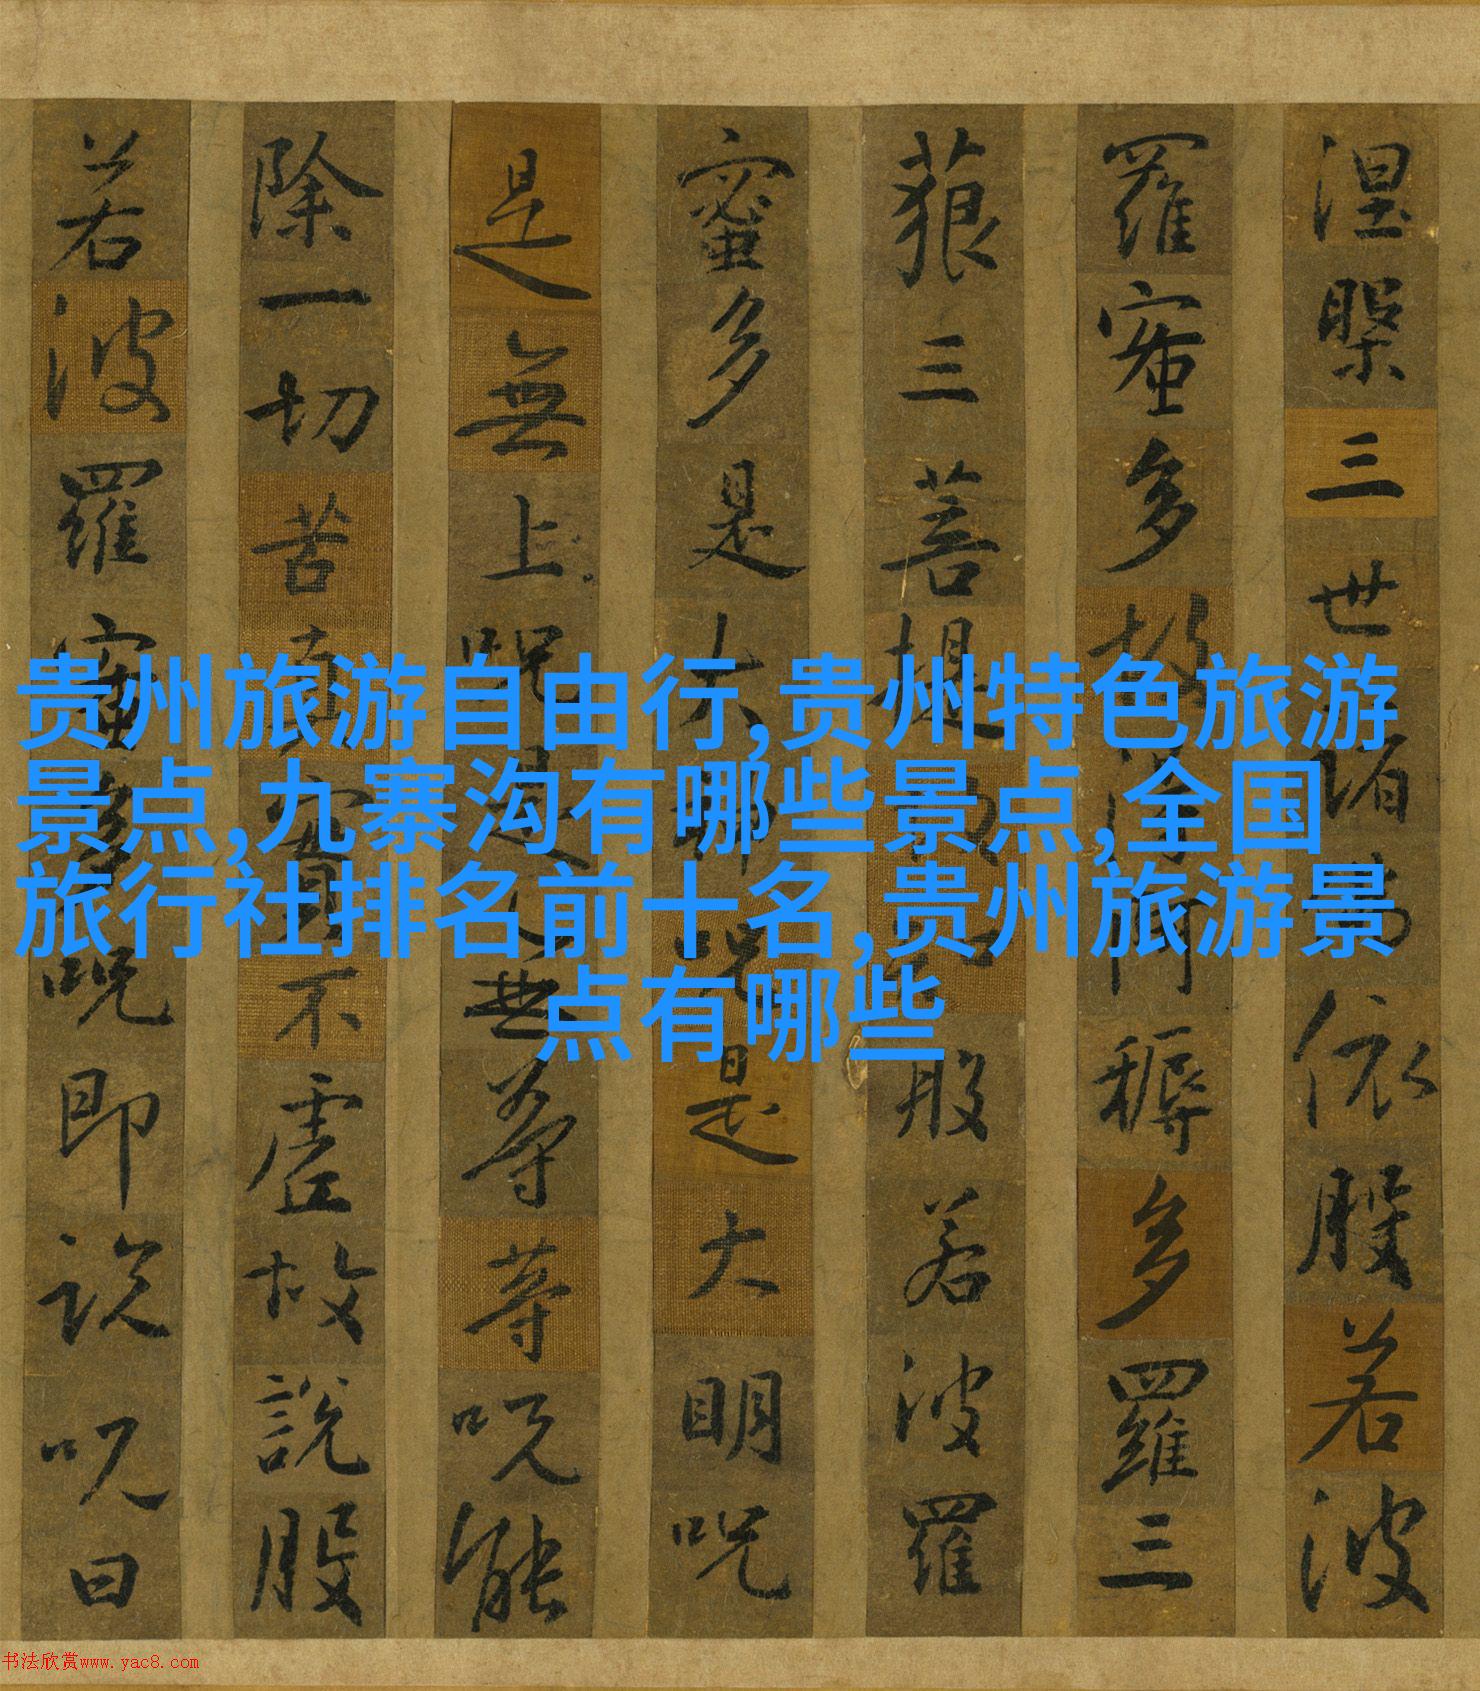 涅槃三世諸依般若波
羅蜜多故得阿耨多羅三
藐三菩提故知般若波羅
蜜多是大神咒是大明咒
是無上咒是無等等咒能
除一切苦真實不虛故說般
若波羅蜜多咒即說咒曰
贵州旅游自由行,贵州特色旅游
景点,九寨沟有哪些景点,全国
旅行社排名前十名,贵州旅游景
点有哪些
书法欣赏www.yac8.com